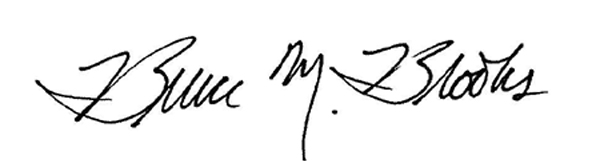 Bruce M. Brooks